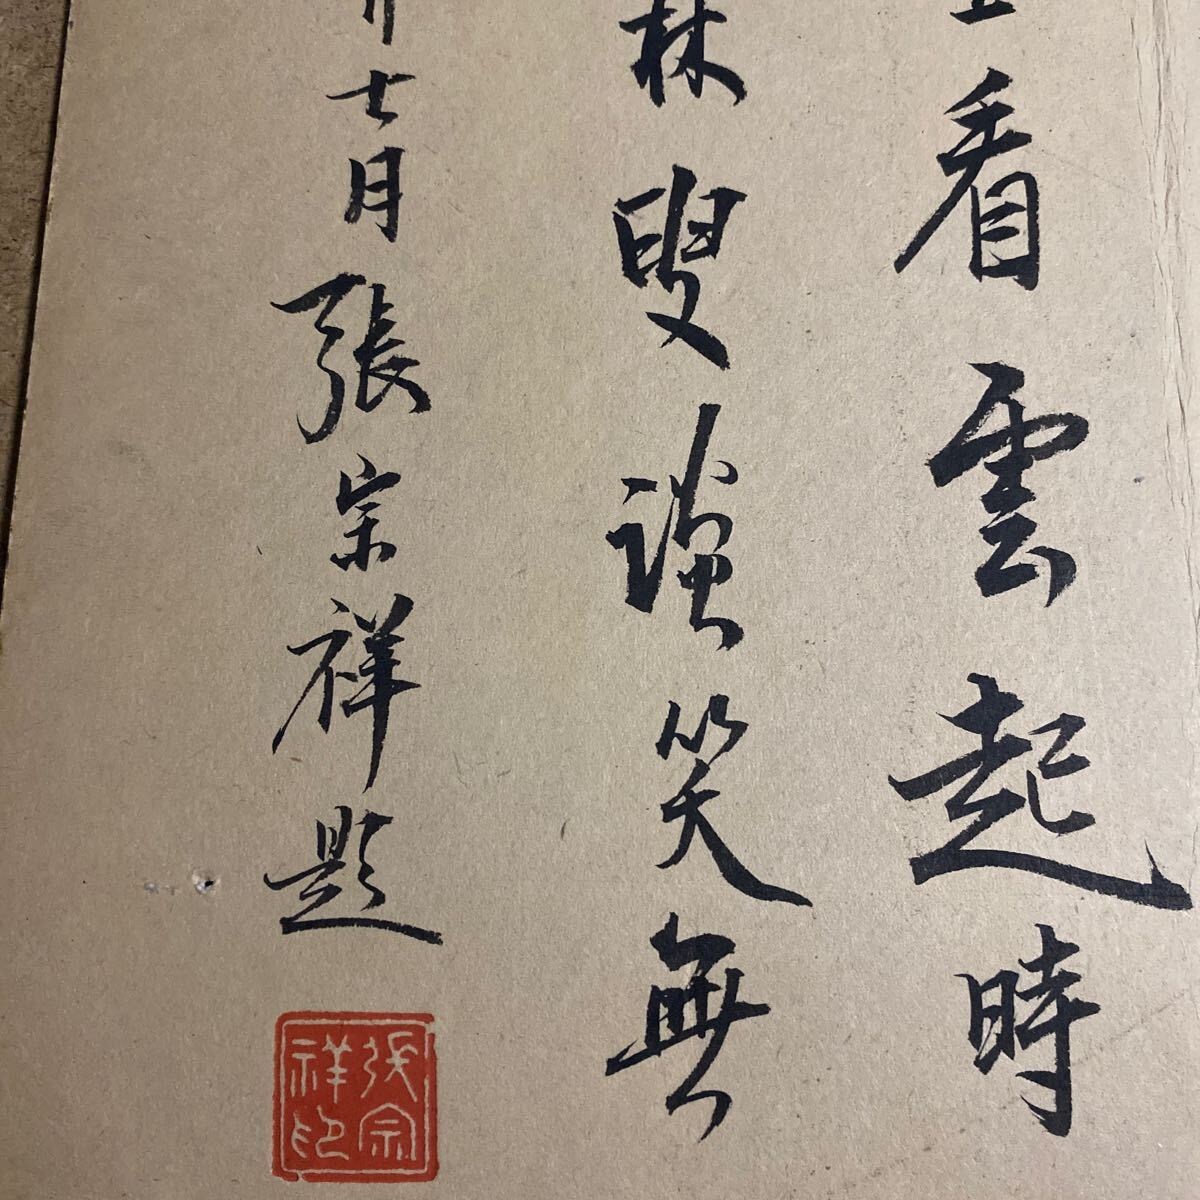 看雲起時
林叟談笑無
七月張宗祥題
張宗祥印